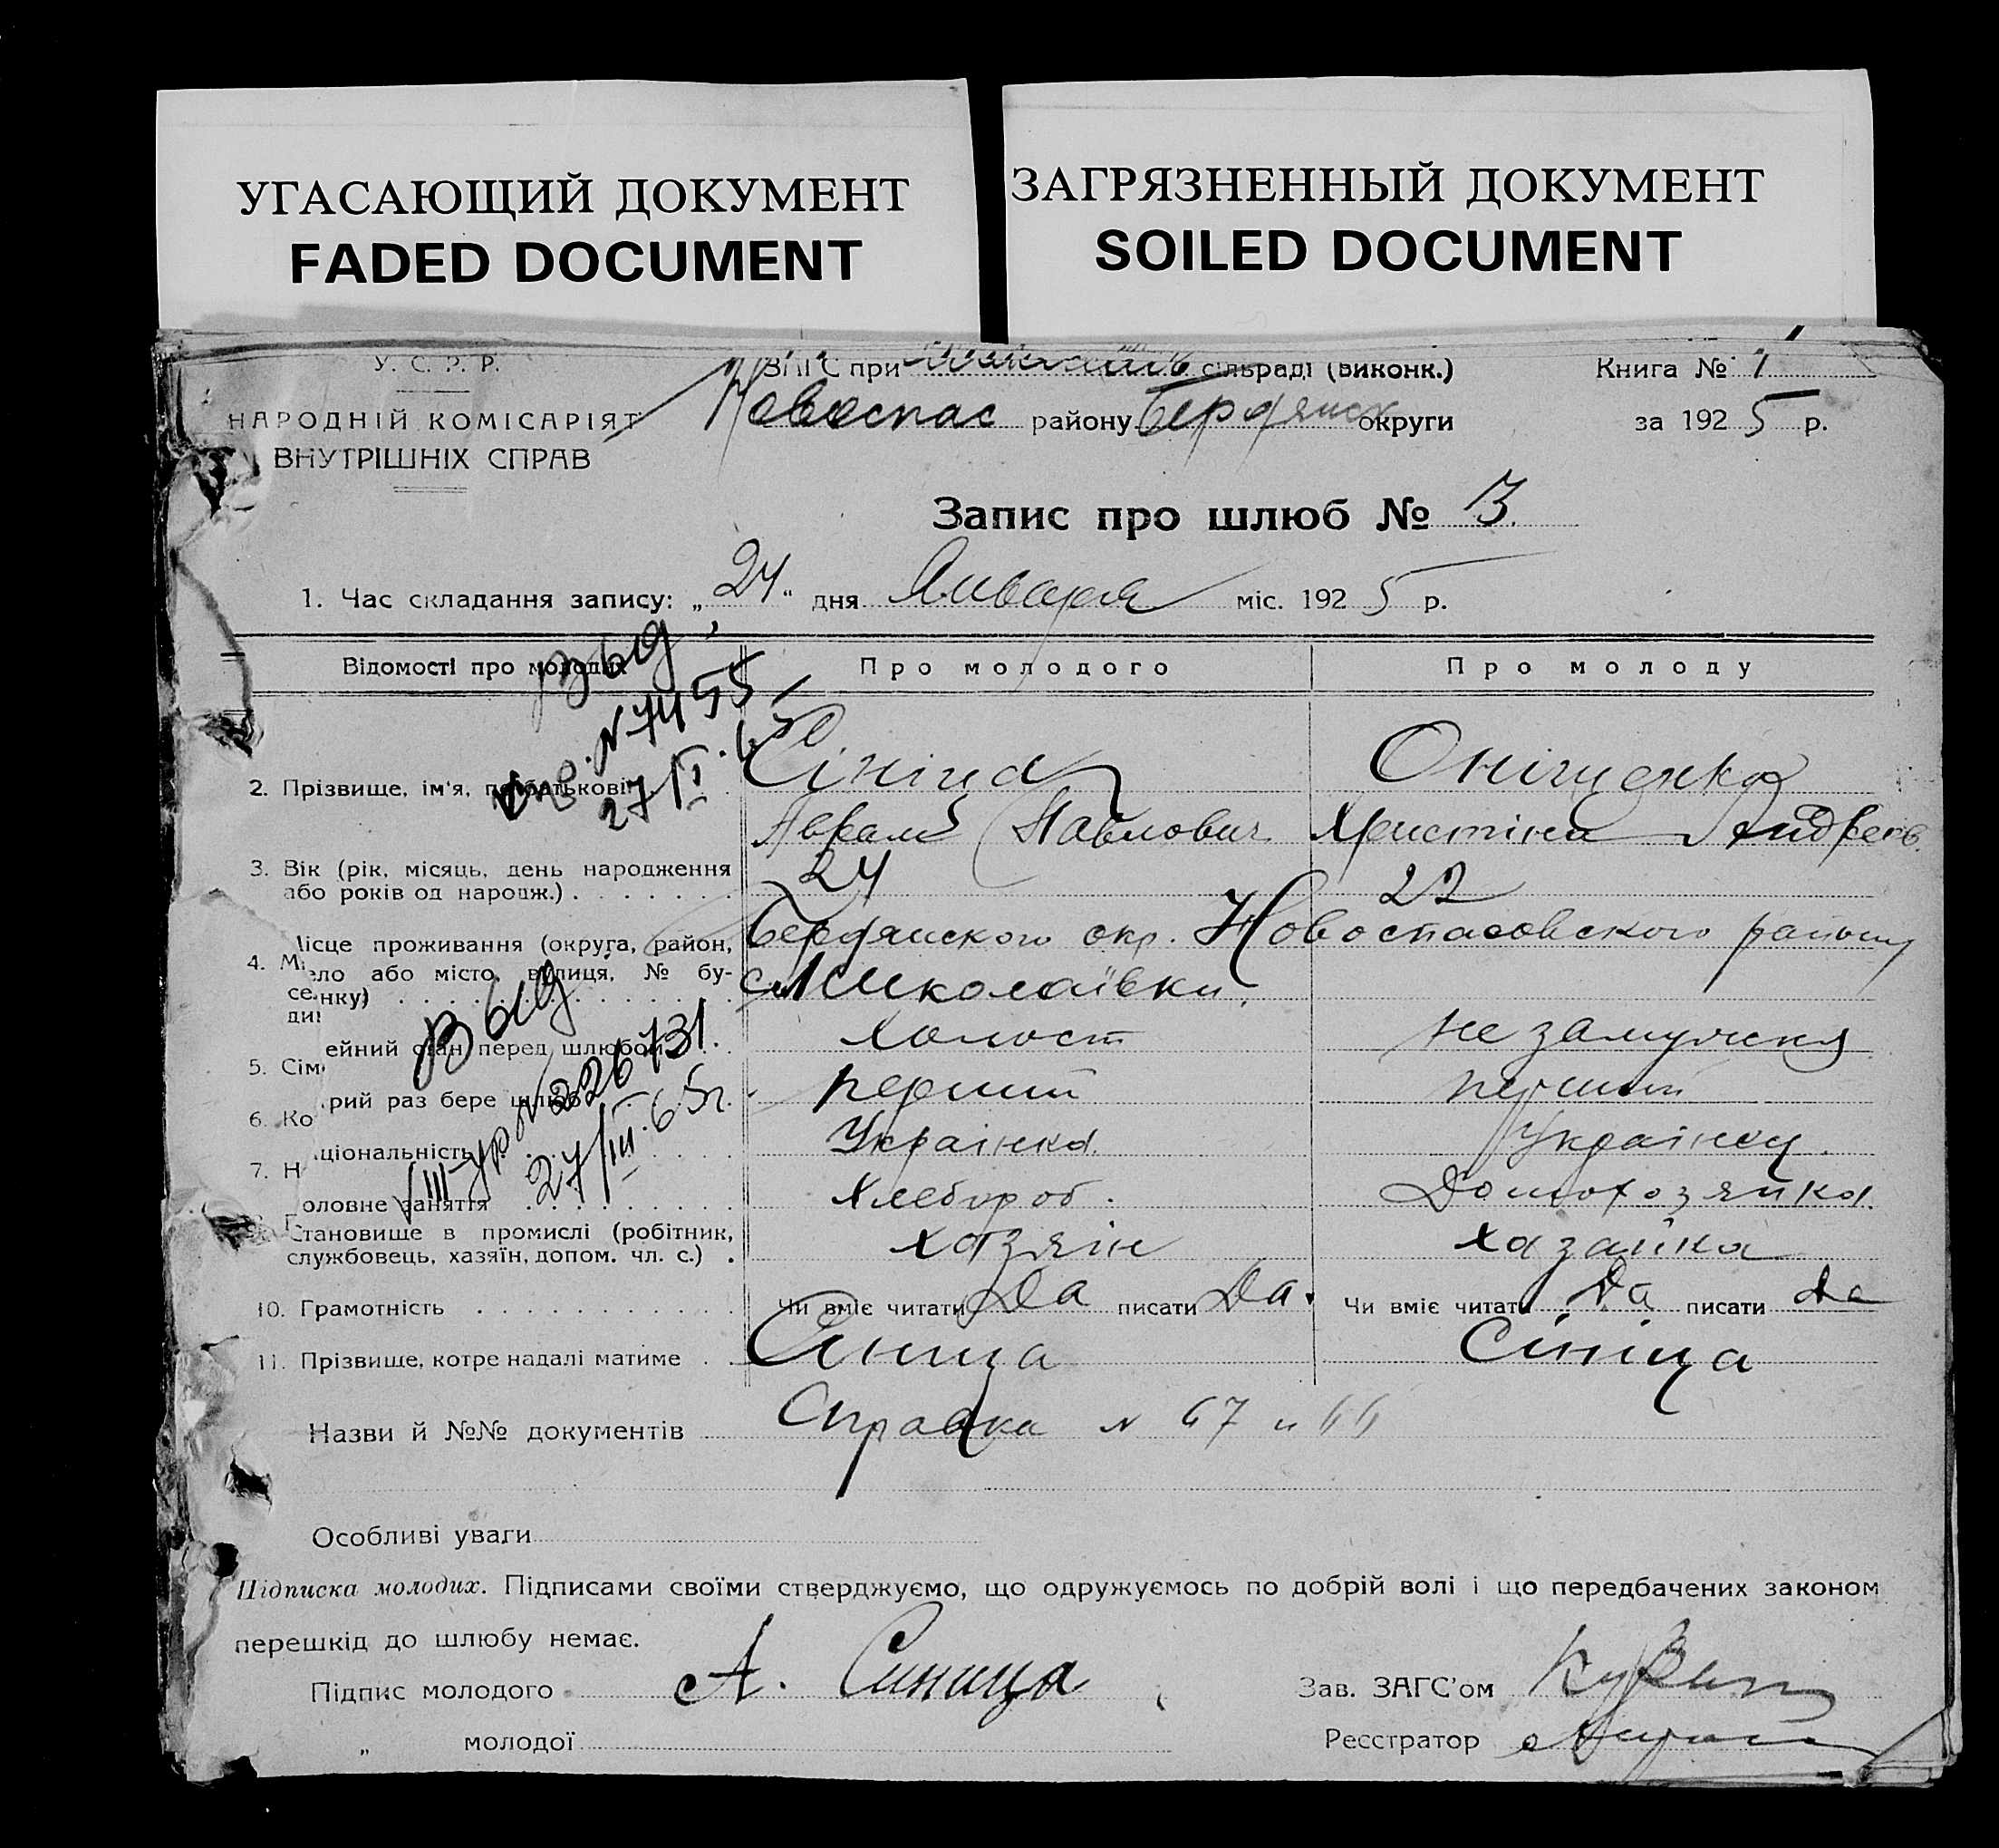 УГАСАЮЩИЙ ДОКУМЕНТ
FADED DOCUMENT
ЗАГРЯЗНЕННЫЙ ДОКУМЕНТ
SOILED DOCUMENT
У. С. Р. Р.
НАРОДНІЙ КОМІСАРІЯТ
ВНУТРІШНІХ СПРАВ
ЗАГС при сільраді (виконк.)
Новоспас району Бердянск округи
Книга № 1
за 1925 р.
Запис про шлюб № 3.
1. Час складання запису: „24“ дня Января міс. 1925 р.
Відомості про молодих
Про молодого
Про молоду
Выд
№ 7455
27/I.65
2. Прізвище, ім'я, по батькові
Сініца
Аврам Павлович
Оніщенко
Христіна Андреев.
3. Вік (рік, місяць, день народження
або років од народж.)
24
22
4. Місце проживання (округа, район,
село або місто, вулиця, № бу-
динку)
Бердянского окр. Новоспасовского району
с. Миколаївки.
Выд
III-УР № 226731.
27/III.65г.
5. Сімейний стан перед шлюбом
холост
не замужня
6. Котрий раз бере шлюб
перший
перший
7. Національність
Українка.
Українка.
8. Головне заняття
Хлебороб.
Домохозяйка.
9. Становище в промислі (робітник,
службовець, хазяїн, допом. чл. с.)
хазяін
хазайка
10. Грамотність
Чи вміє читати Да писати Да.
Чи вміє читати Да писати Да
11. Прізвище, котре надалі матиме
Сініца
Сініца
Назви й №№ документів Справка № 67 и 66
Особливі уваги
Підписка молодих. Підписами своїми стверджуємо, що одружуємось по добрій волі і що передбачених законом
перешкід до шлюбу немає.
Підпис молодого А. Синица
„ молодої
Зав. ЗАГС'ом
Реєстратор